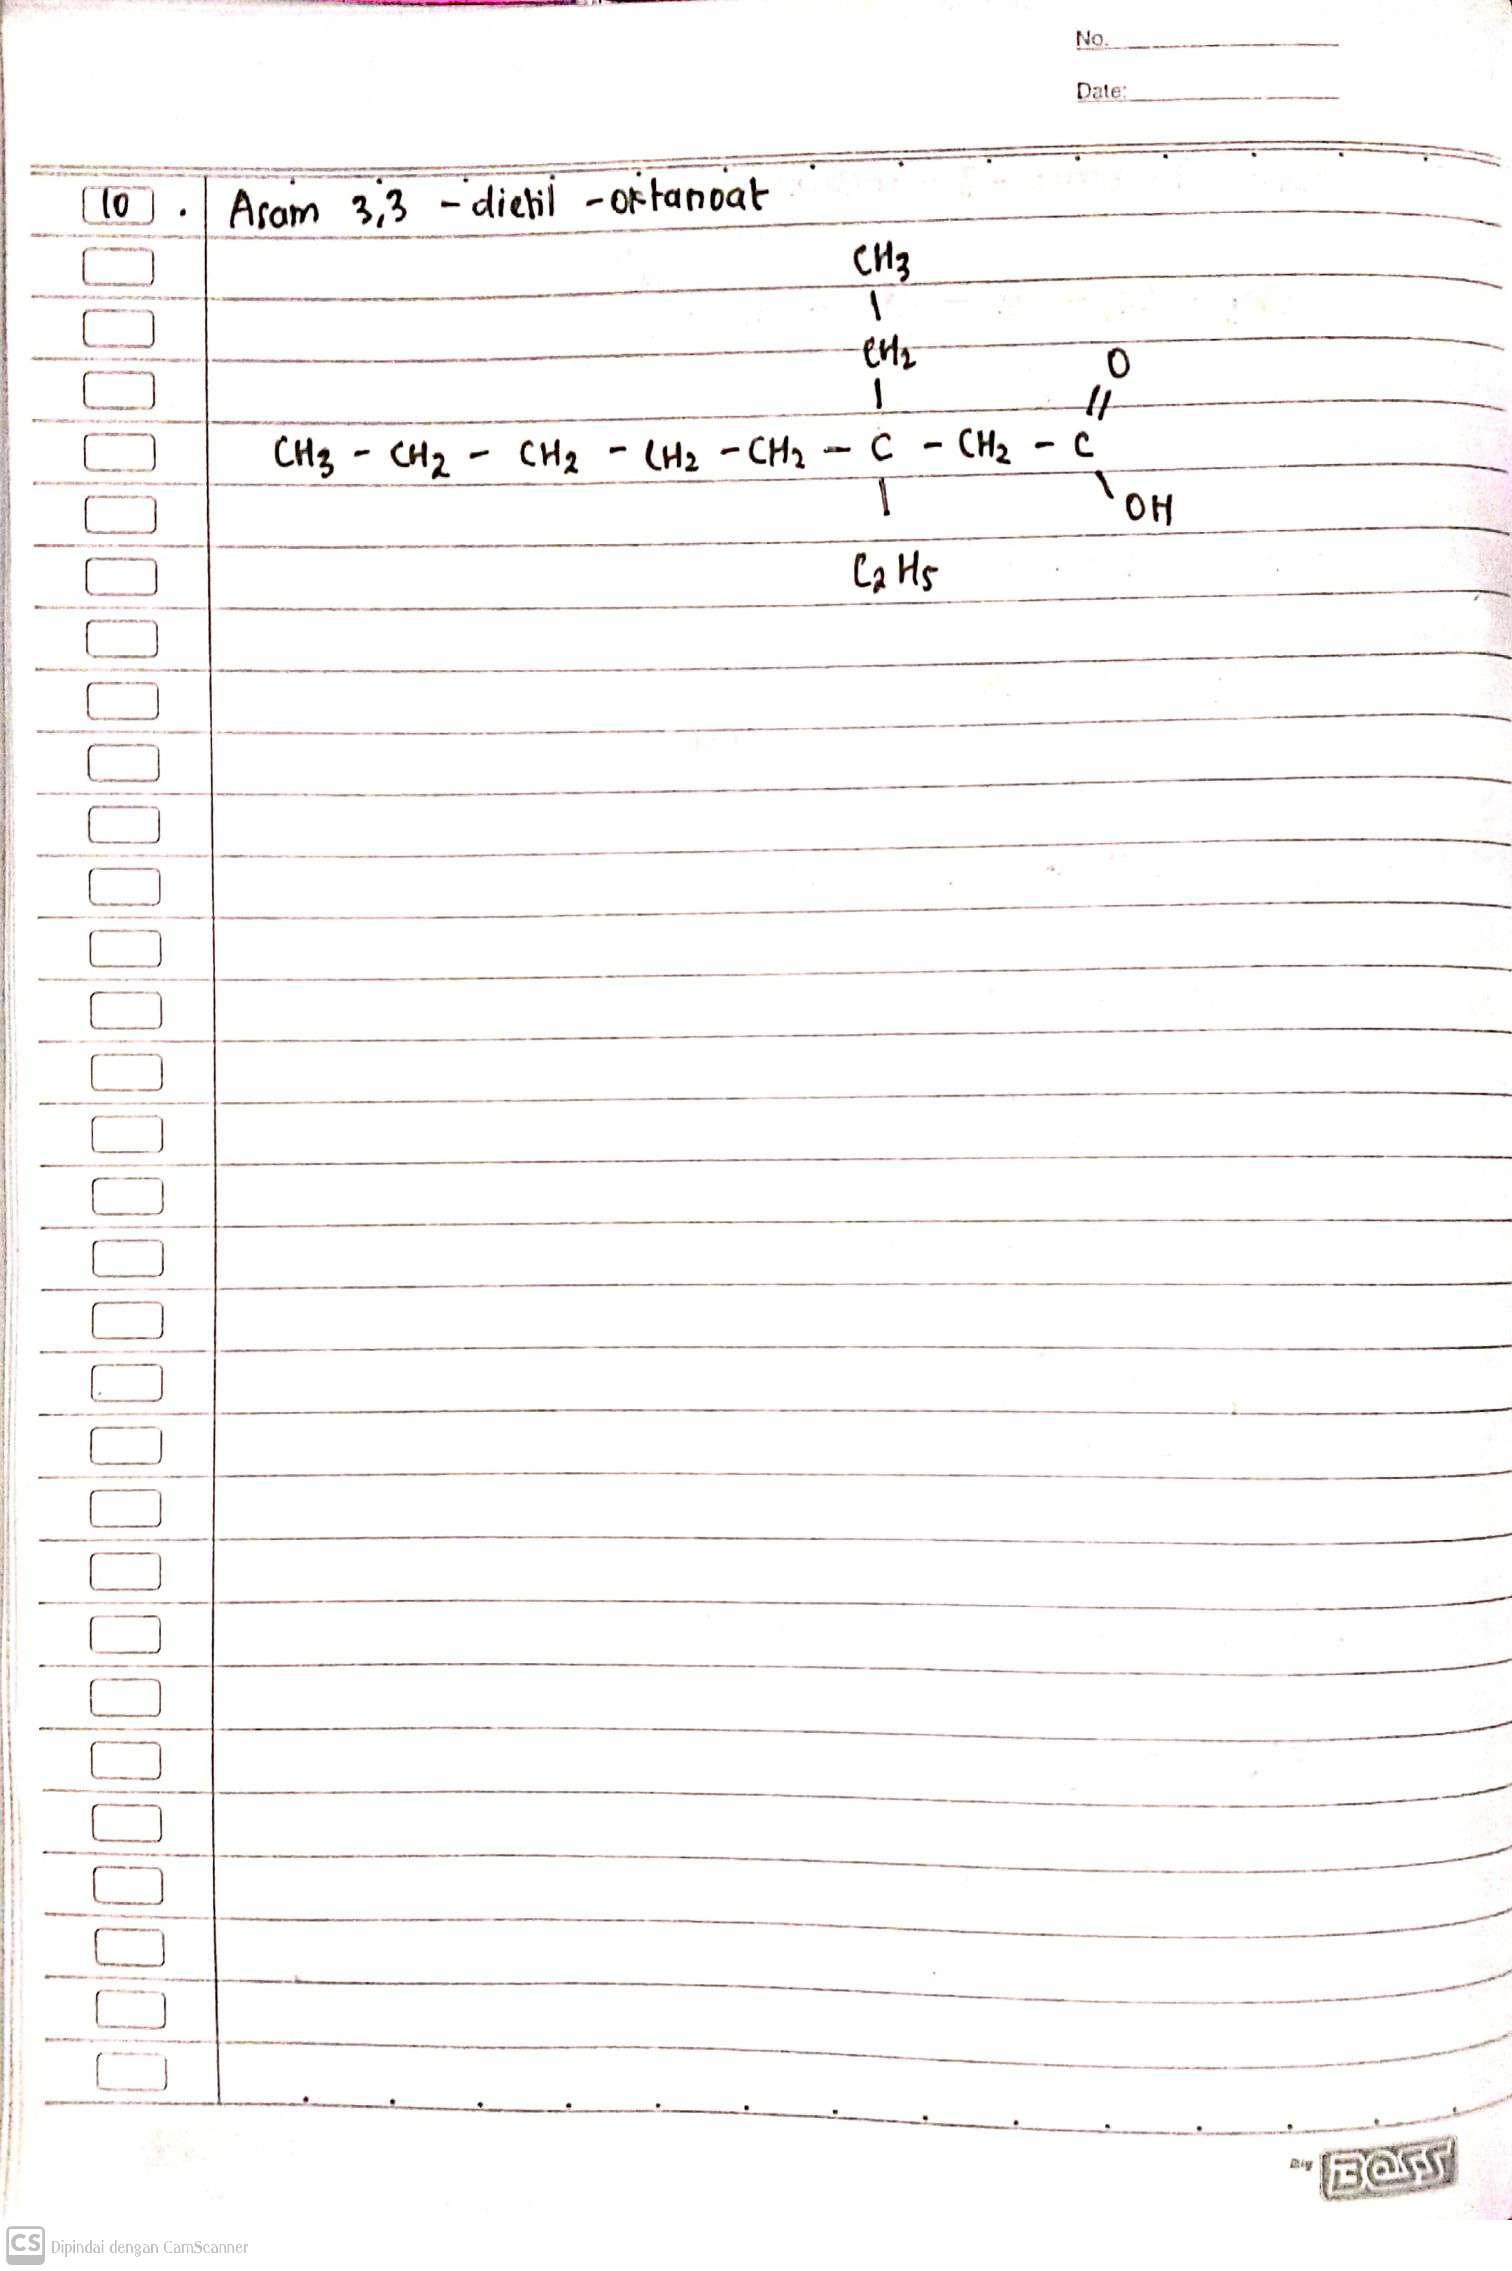 No.
Date:
10 . Asam 3,3 - dietil - oktanoat
CH3
|
CH2 O
| //
CH3 - CH2 - CH2 - CH2 - CH2 - C - CH2 - C
| \ OH
C2H5
Big BOSS
CS Dipindai dengan CamScanner